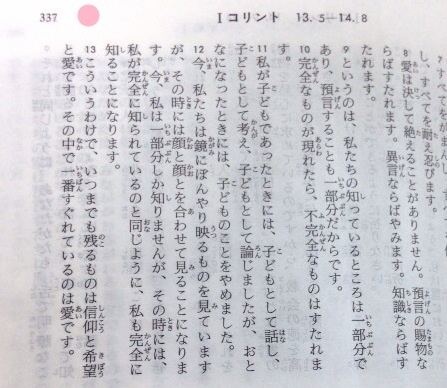 337
Ⅰコリント 13. 5―14. 8
し、すべてを耐え忍びます。
8 愛は決して絶えることがありません。預言の賜物な
らばすたれます。異言ならばやみます。知識ならばす
たれます。
9 というのは、私たちの知っているところは一部分で
あり、預言することも一部分だからです。
10 完全なものが現れたら、不完全なものはすたれま
す。
11 私が子どもであったときには、子どもとして話し、
子どもとして考え、子どもとして論じましたが、おと
なになったときには、子どものことをやめました。
12 今、私たちは鏡にぼんやり映るものを見ています
が、その時には顔と顔とを合わせて見ることになりま
す。今、私は一部分しか知りませんが、その時には、
私が完全に知られているのと同じように、私も完全に
知ることになります。
13 こういうわけで、いつまでも残るものは信仰と希望
と愛です。その中で一番すぐれているのは愛です。